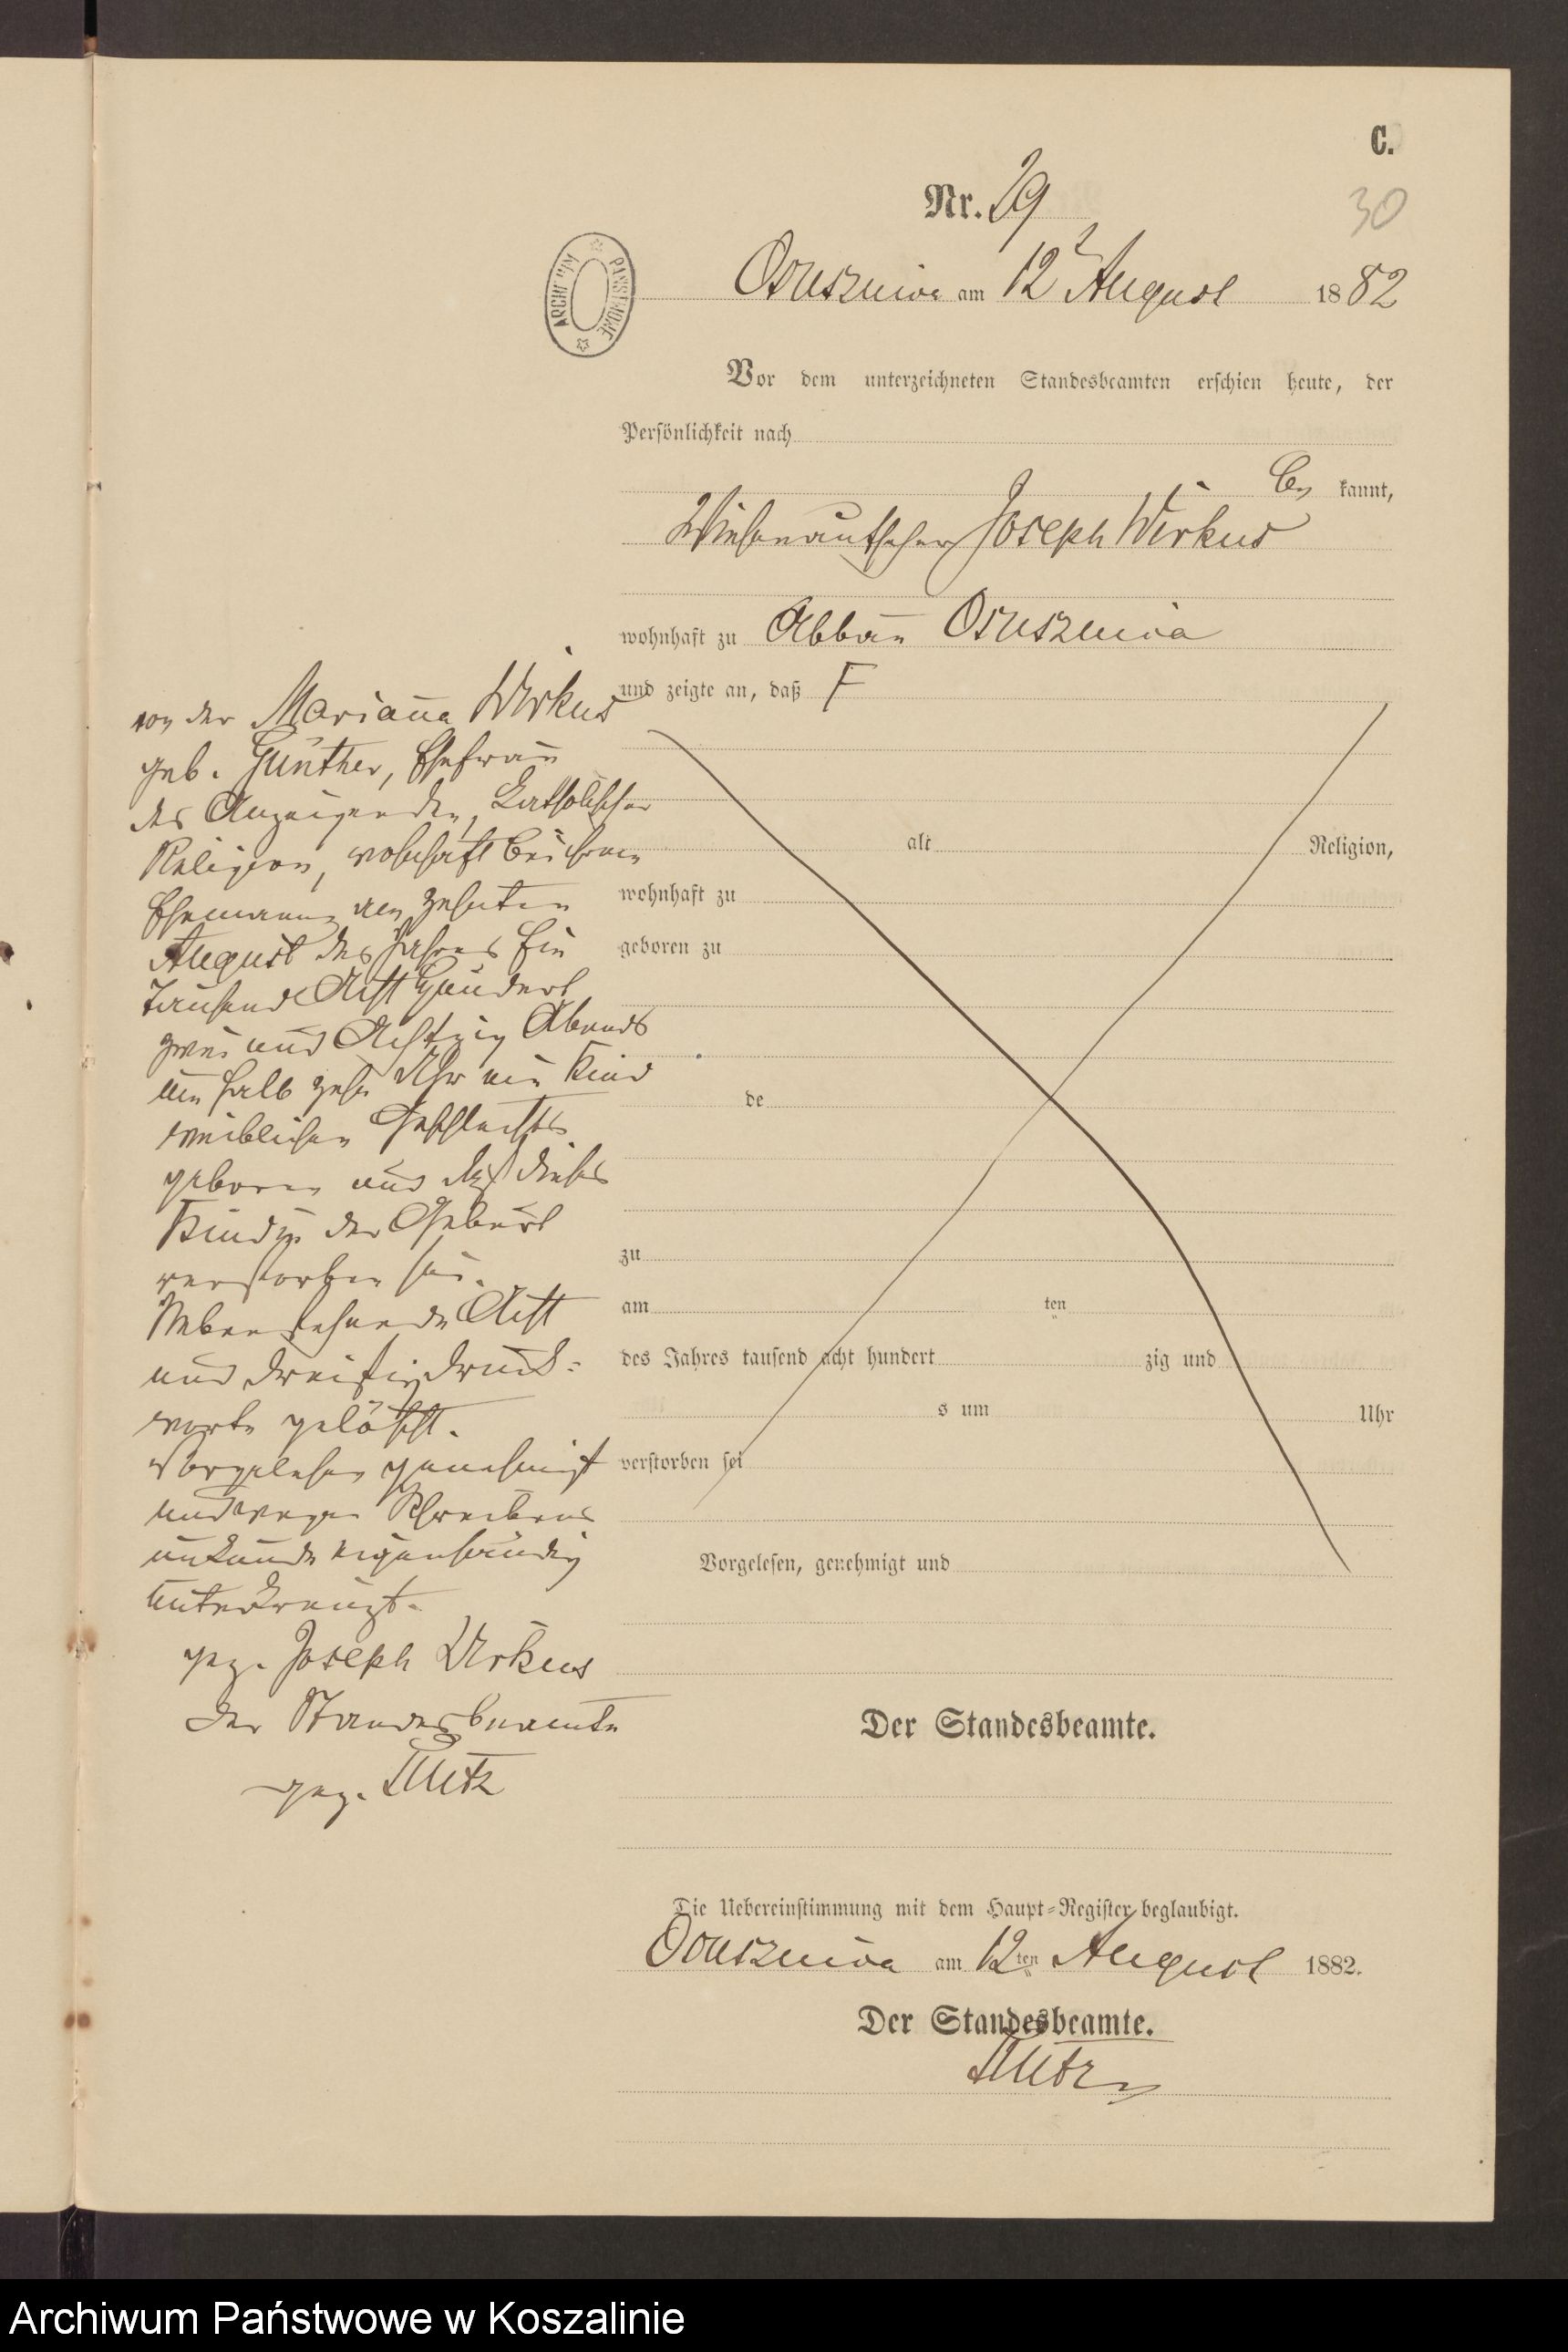 C.
Nr. 29
30
ARCHIWUM PAŃSTWOWE
Osuszniça am 12 August 1882
Vor dem unterzeichneten Standesbeamten erschien heute, der
Persönlichkeit nach
be kannt,
Joseph Wirkus
wohnhaft zu Abbau Osusznica
und zeigte an, daß F
von der Marianna Wirkus
geb. Günther, Ehefrau
des Anzeigenden, katholischer
Religion, wohnhaft bei ihrem
Ehemann am zehnten
August des Jahres Ein
Tausend Acht Hundert
zwei und Achtzig Abends
um halb zehn Uhr ein Kind
weiblichen Geschlechts
geboren und daß dieses
Kind in der Geburt
verstorben sei.
Nebenstehende Acht
und dreißig Druck-
worte gelöscht.
Vorgelesen genehmigt
und wegen Schreibens
unkunde eigenhändig
unterkreuzt.
gez. Joseph Wirkus
Der Standesbeamte
gez.
alt Religion,
wohnhaft zu
geboren zu
de
zu
am ten
des Jahres tausend acht hundert zig und
s um Uhr
verstorben sei
Vorgelesen, genehmigt und
Der Standesbeamte.
Die Uebereinstimmung mit dem Haupt-Register beglaubigt.
Osusznica am 12ten August 1882.
Der Standesbeamte.
Archiwum Państwowe w Koszalinie